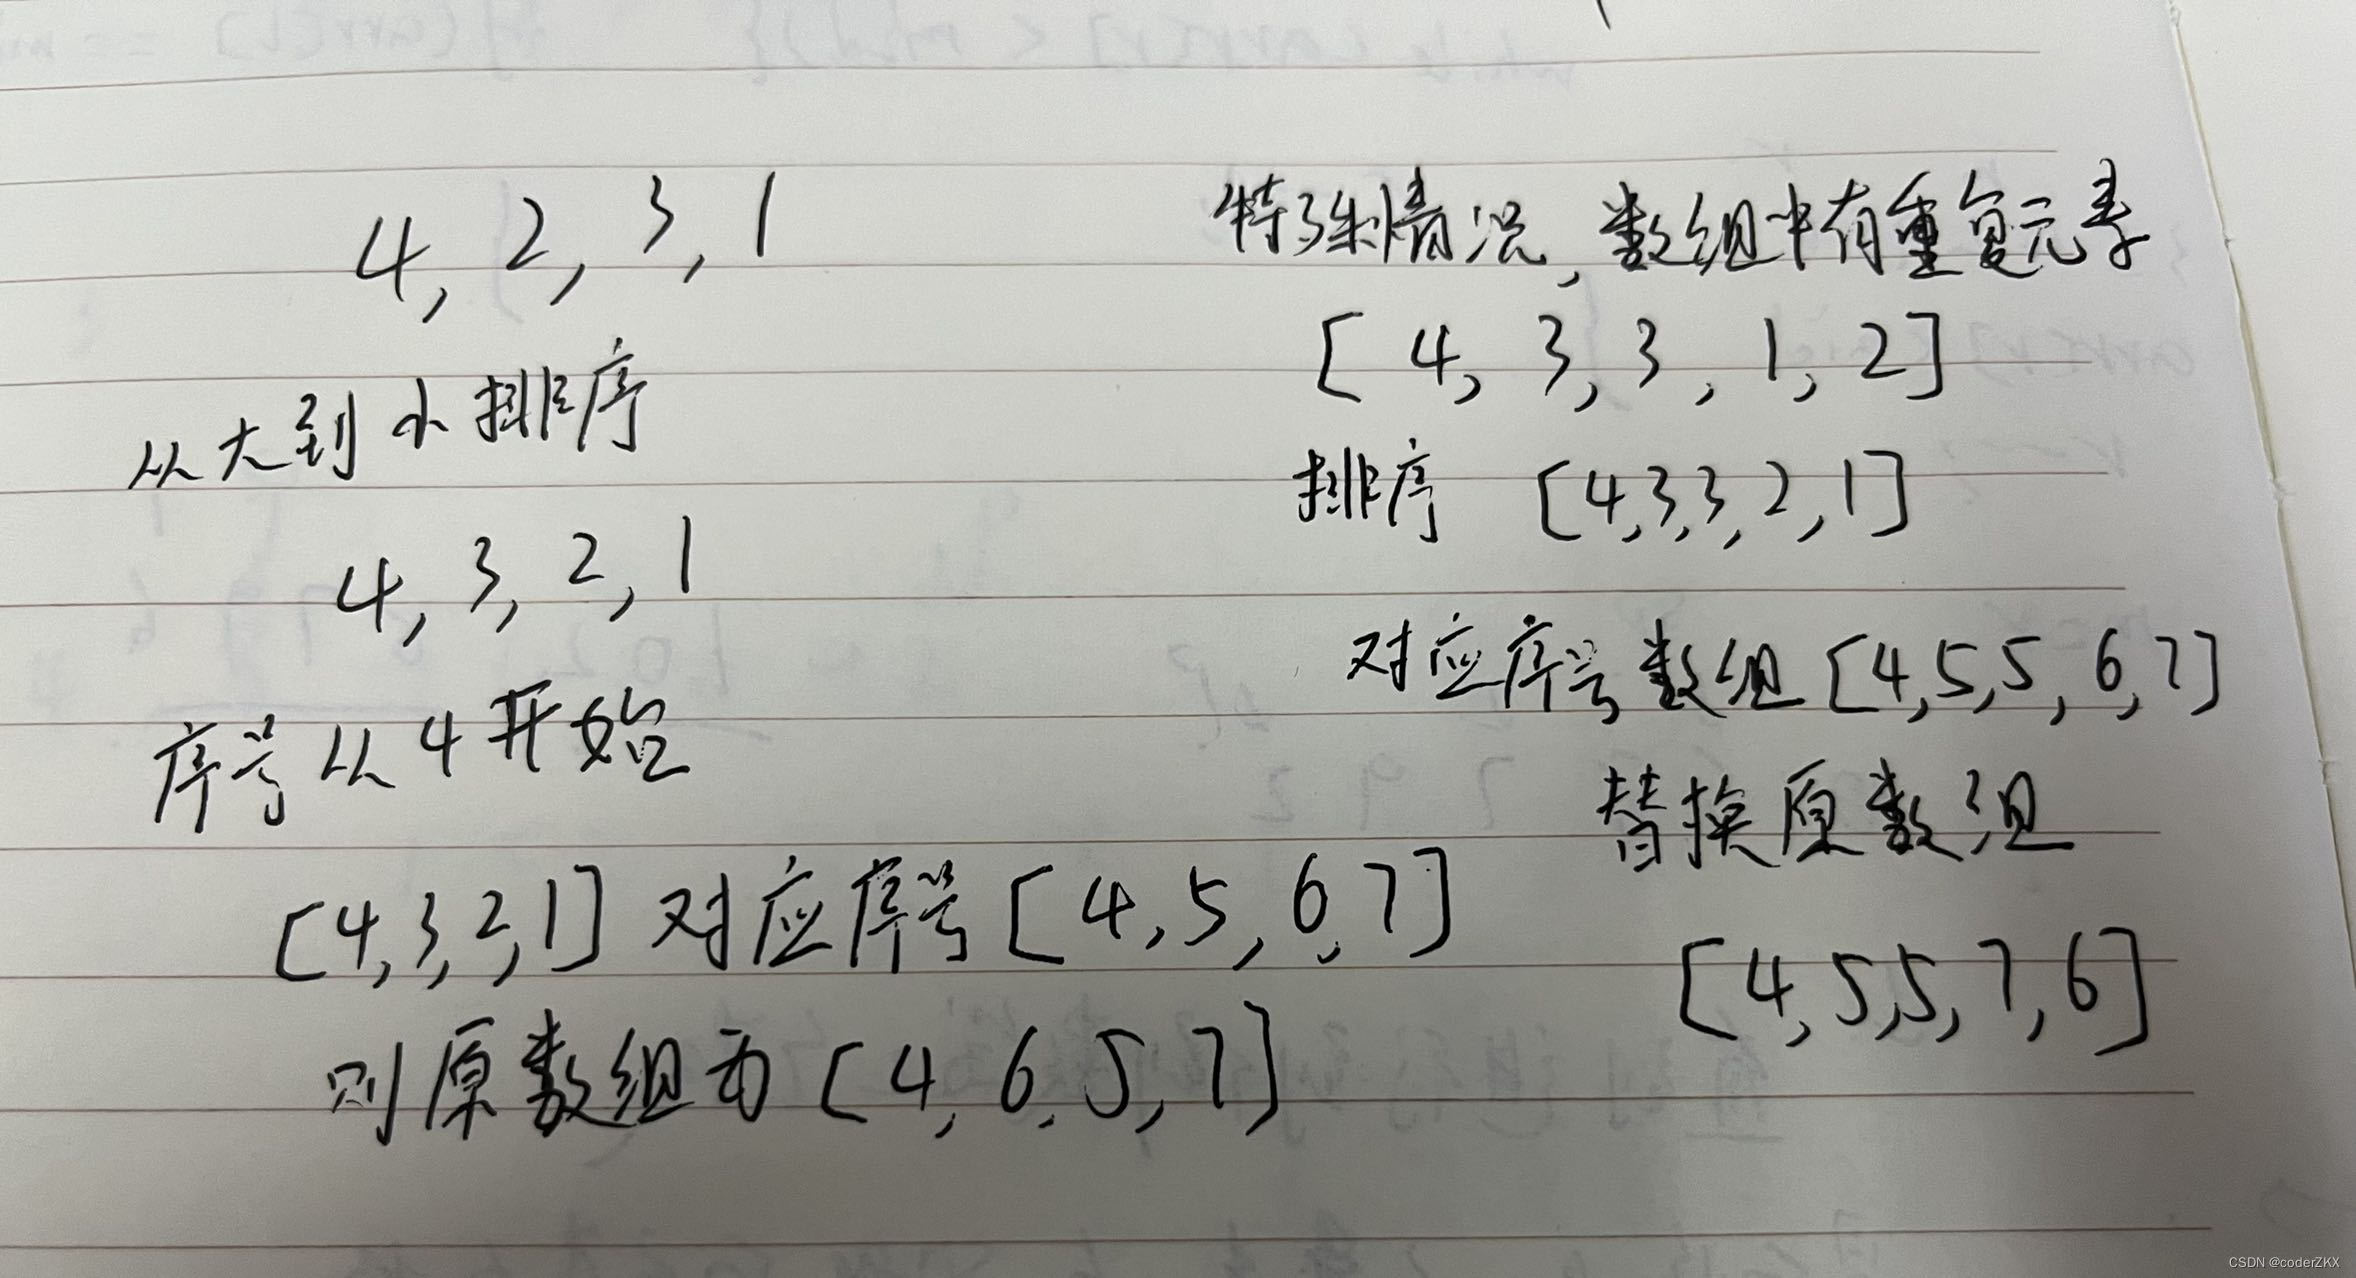 4, 2, 3, 1
从大到小排序
4, 3, 2, 1
序号从4开始
[4,3,2,1] 对应序号[4,5,6,7]
则原数组为[4,6,5,7]
特殊情况,数组中有重复元素
[4,3,3,1,2]
排序 [4,3,3,2,1]
对应序号数组[4,5,5,6,7]
替换原数组
[4,5,5,7,6]
CSDN @coderZKX